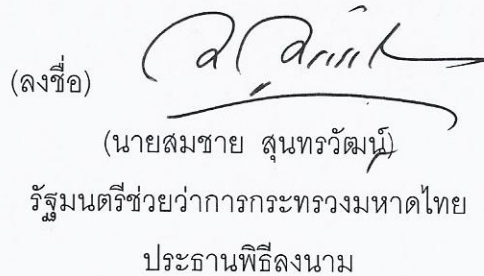 (ลงชื่อ)
(นายสมชาย สุนทรวัฒน์)
รัฐมนตรีช่วยว่าการกระทรวงมหาดไทย
ประธานพิธีลงนาม